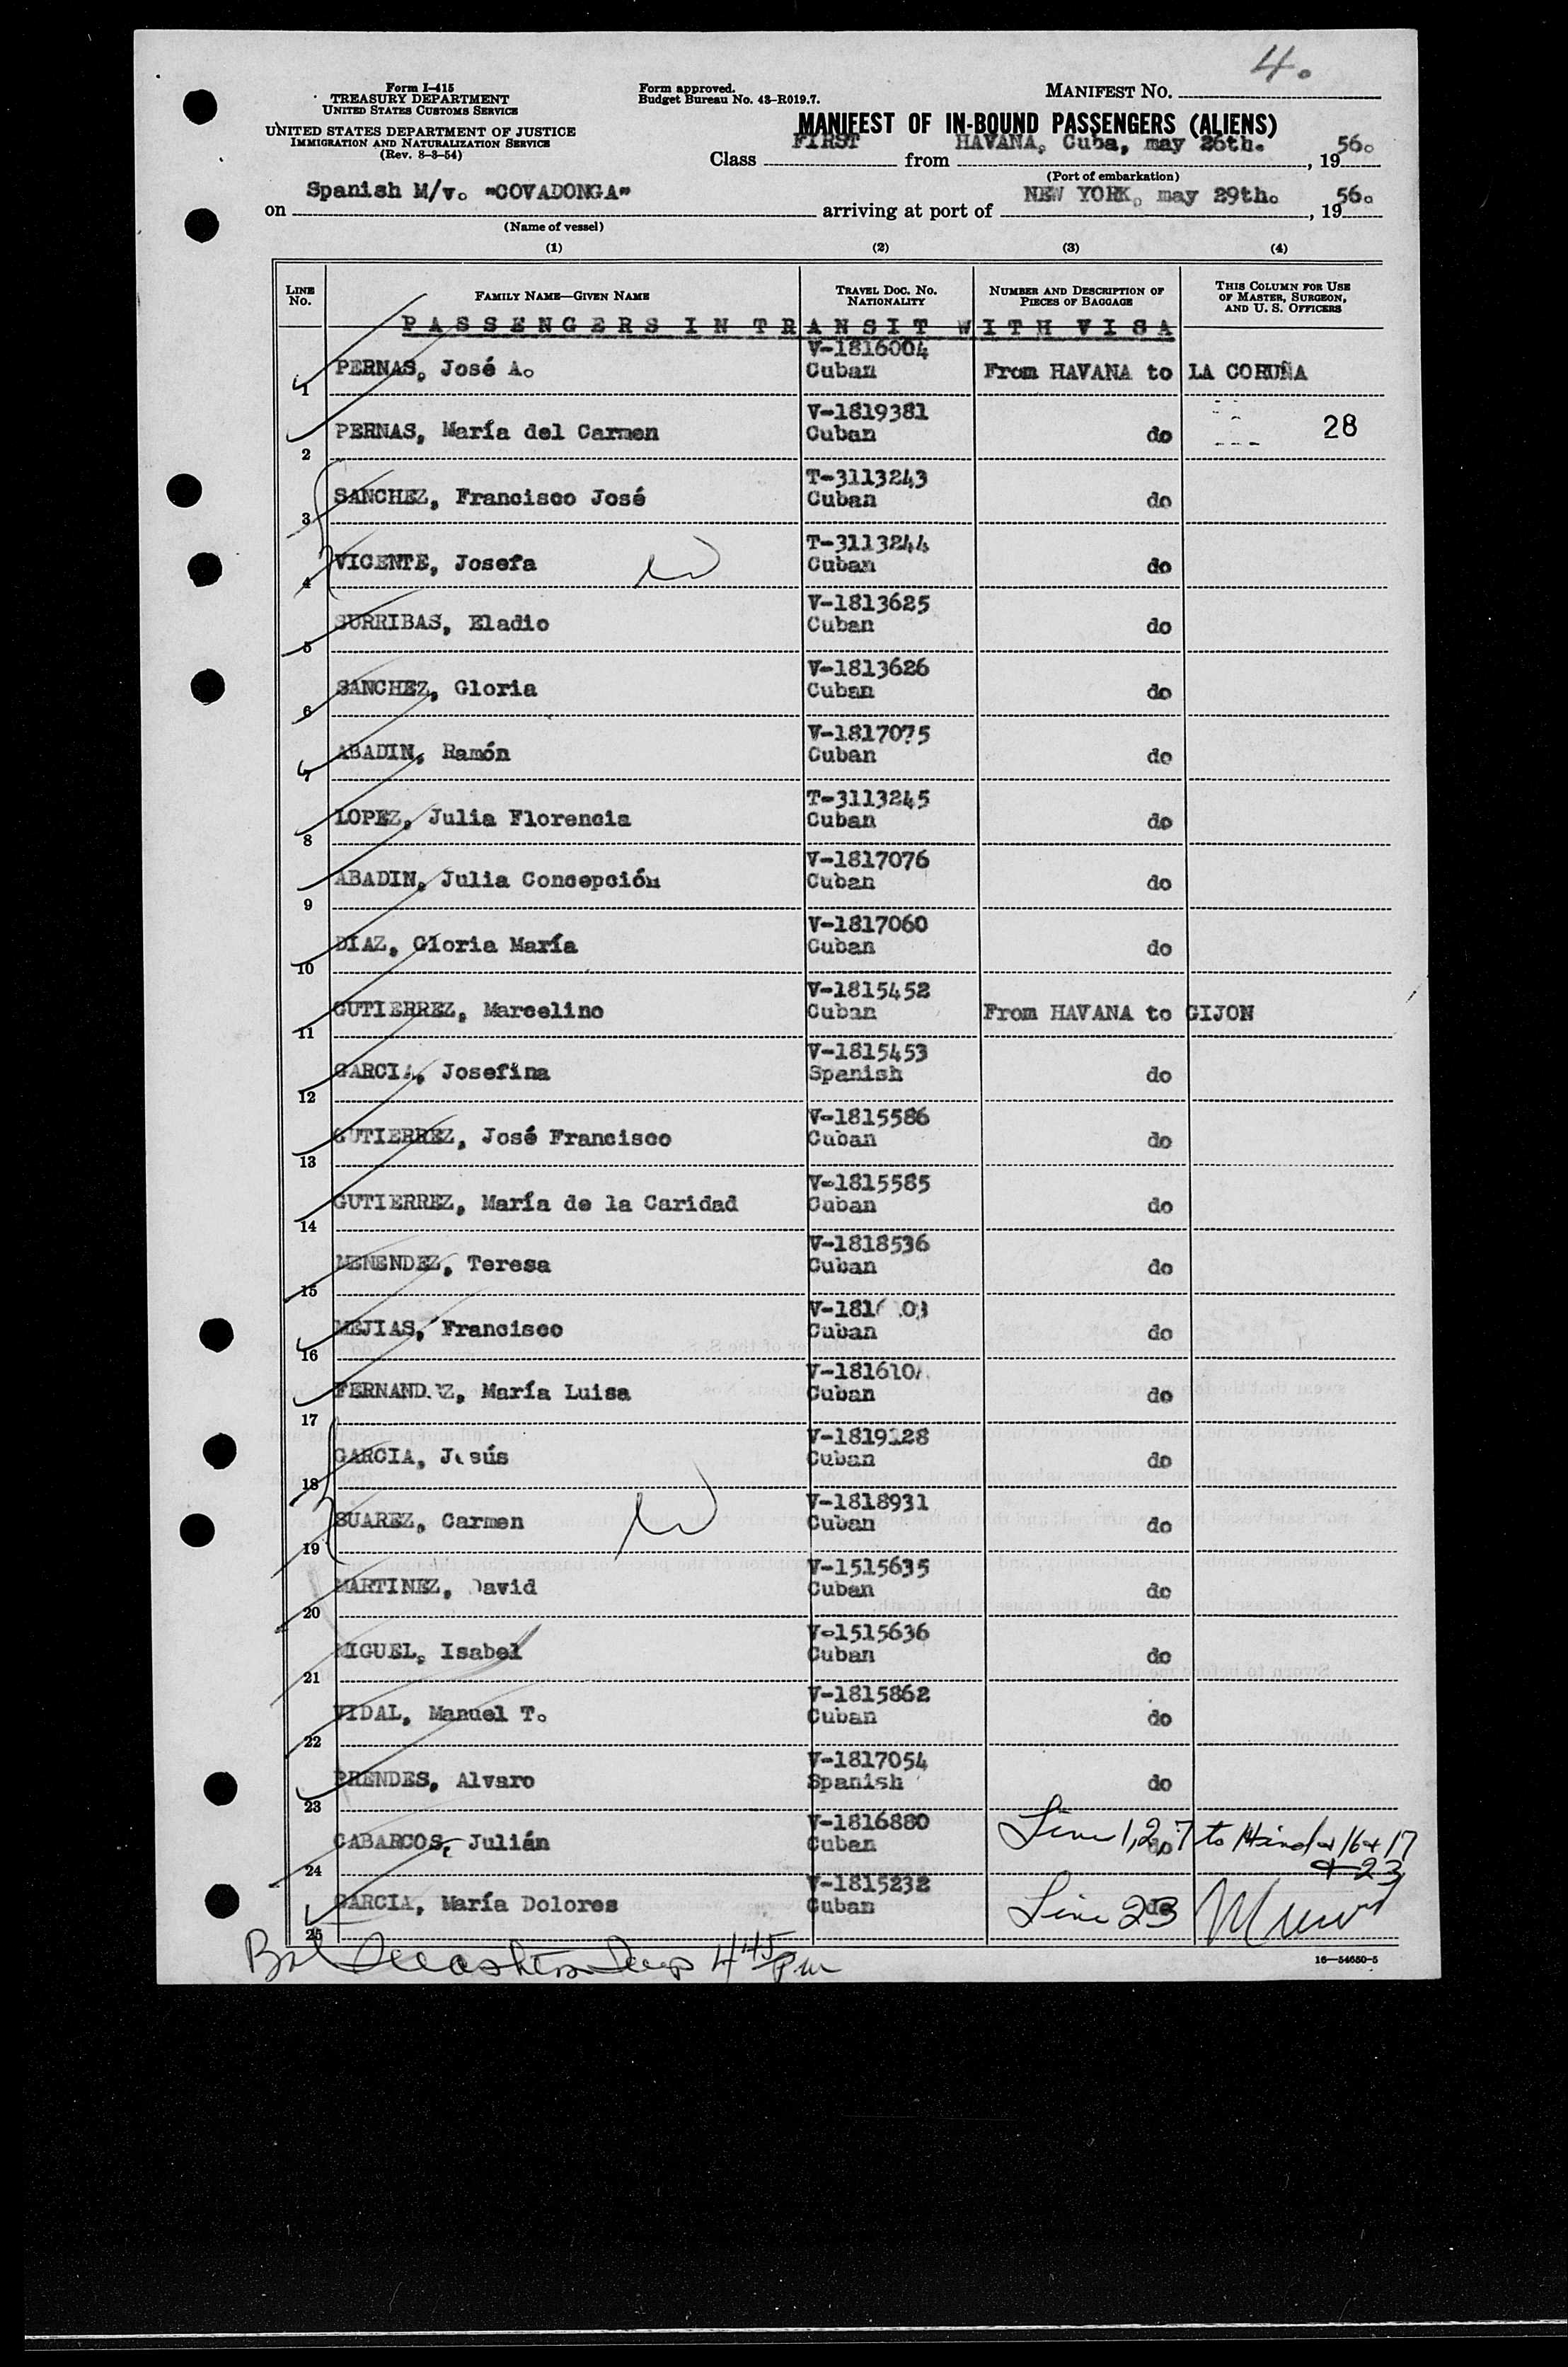 4.
Form I-415
TREASURY DEPARTMENT
UNITED STATES CUSTOMS SERVICE
UNITED STATES DEPARTMENT OF JUSTICE
IMMIGRATION AND NATURALIZATION SERVICE
(Rev. 8-3-54)
Form approved.
Budget Bureau No. 43-R019.7.
MANIFEST NO.
MANIFEST OF IN-BOUND PASSENGERS (ALIENS)
Class FIRST from HAVANA, Cuba, may 26th. , 19 56.
(Port of embarkation)
on Spanish M/v. "COVADONGA" arriving at port of NEW YORK, may 29th. , 19 56.
(Name of vessel)
(1) (2) (3) (4)
LINE NO. FAMILY NAME—GIVEN NAME TRAVEL DOC. NO. NATIONALITY NUMBER AND DESCRIPTION OF PIECES OF BAGGAGE THIS COLUMN FOR USE OF MASTER, SURGEON, AND U. S. OFFICERS
PASSENGERS IN TRANSIT WITH VISA
1 PERNAS, José A. V-1816004 Cuban From HAVANA to LA CORUÑA
2 PERNAS, María del Carmen V-1819381 Cuban do 28
3 SANCHEZ, Francisco José T-3113243 Cuban do
4 VICENTE, Josefa T-3113244 Cuban do
5 SURRIBAS, Eladio V-1813625 Cuban do
6 SANCHEZ, Gloria V-1813626 Cuban do
7 ABADIN, Ramón V-1817075 Cuban do
8 LOPEZ, Julia Florencia T-3113245 Cuban do
9 ABADIN, Julia Concepción V-1817076 Cuban do
10 DIAZ, Gloria María V-1817060 Cuban do
11 GUTIERREZ, Marcelino V-1815452 Cuban From HAVANA to GIJON
12 GARCIA, Josefina V-1815453 Spanish do
13 GUTIERREZ, José Francisco V-1815586 Cuban do
14 GUTIERREZ, María de la Caridad V-1815585 Cuban do
15 MENENDEZ, Teresa V-1818536 Cuban do
16 MEJIAS, Francisco Cuban do
17 FERNANDEZ, María Luisa Cuban do
18 GARCIA, Jesús V-1819128 Cuban do
19 SUAREZ, Carmen V-1818931 Cuban do
20 MARTINEZ, David V-1515635 Cuban do
21 MIGUEL, Isabel V-1515636 Cuban do
22 VIDAL, Manuel T. V-1815862 Cuban do
23 PRENDES, Alvaro V-1817054 Spanish do
24 CABARCOS, Julián V-1816880 Cuban do Line 1,2,7 to 16 + 17
+ 23
25 GARCIA, María Dolores V-1815232 Cuban do Line 23
4 45 pm
16—54650-5